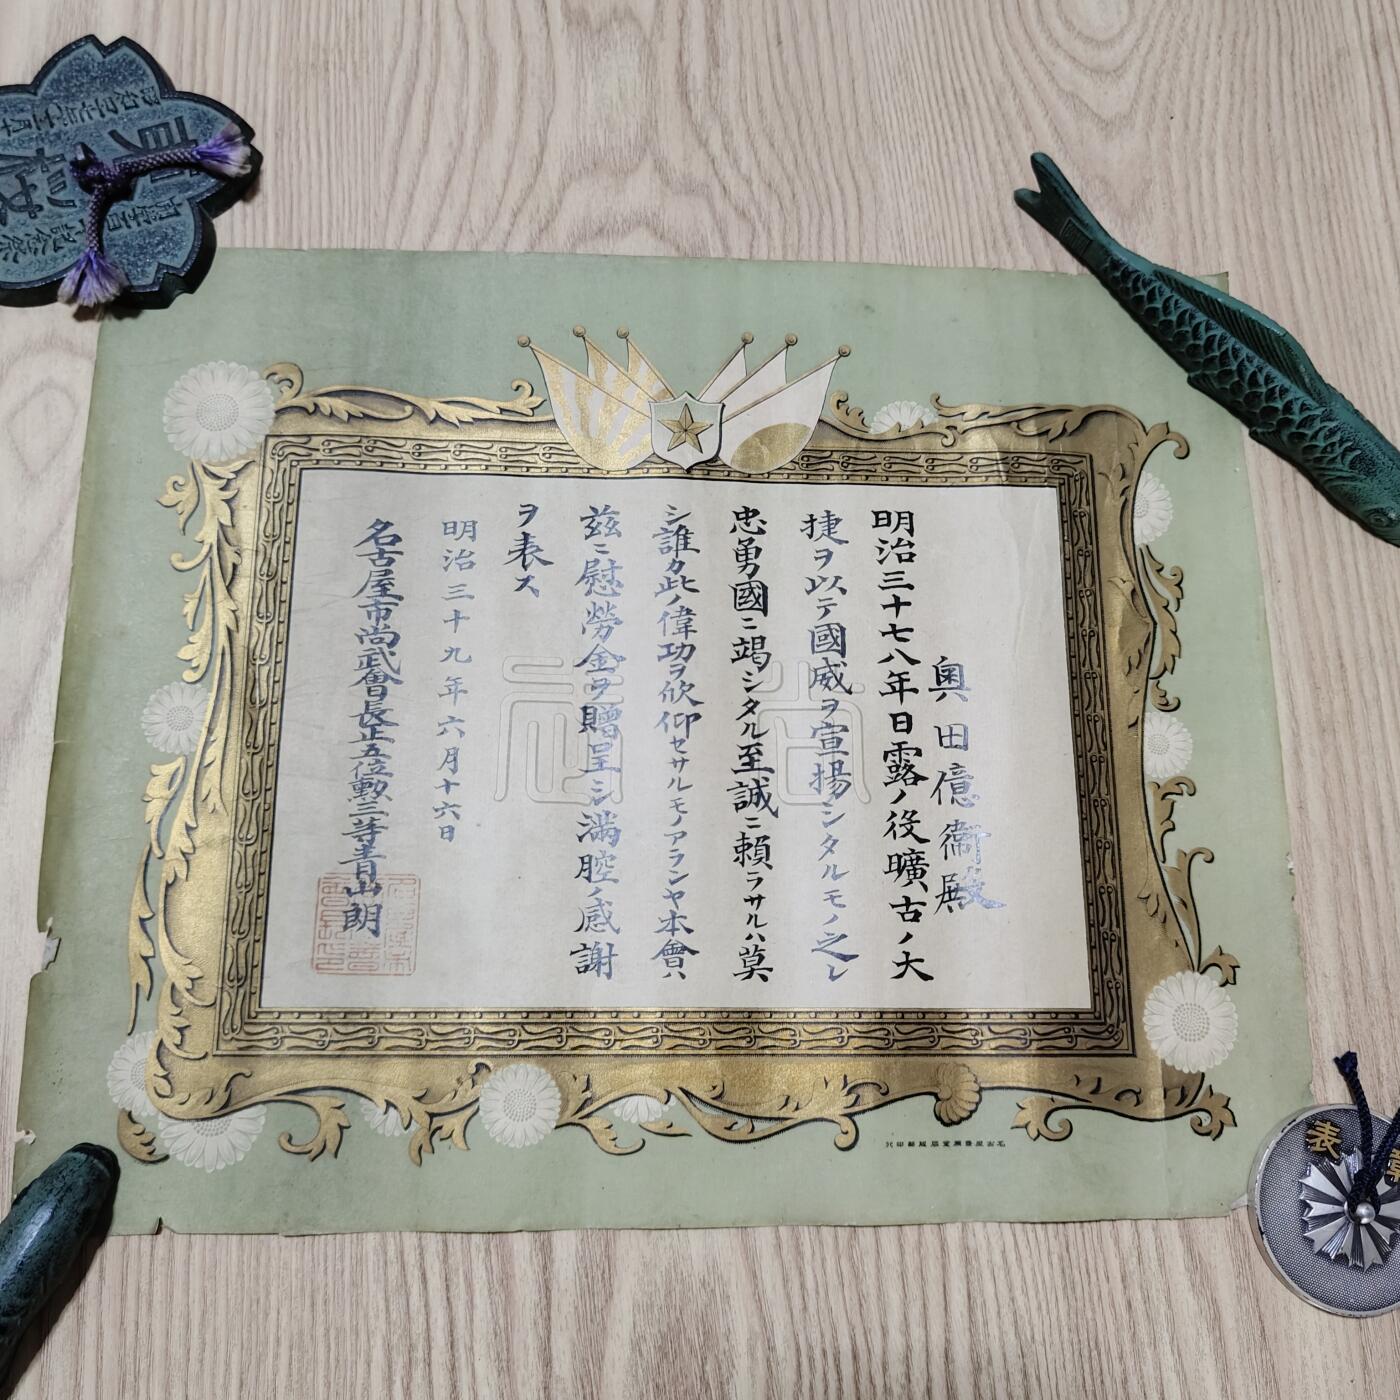 奥田億衞殿
明治三十七八年日露ノ役曠古ノ大
捷ヲ以テ國威ヲ宣揚シタルモノ之レ
忠勇國ニ竭シタル至誠ニ賴ラサルハ莫
シ誰カ此ノ偉功ヲ欣仰セサルモノアランヤ本會ハ
茲ニ慰勞金ヲ贈呈シ滿腔ノ感謝
ヲ表ス
明治三十九年六月十六日
名古屋市尚武會長正五位勲三等青山朗
尚武